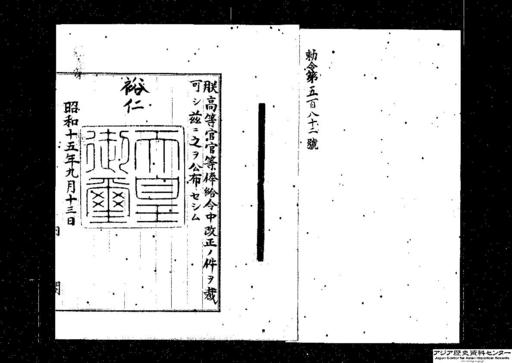 勅令第五百八十二號
朕高等官官等俸給令中改正ノ件ヲ裁
可シ茲ニ之ヲ公布セシム
裕仁
天皇
御璽
昭和十五年九月十三日
内閣
アジア歴史資料センター
Japan Center for Asian Historical Records